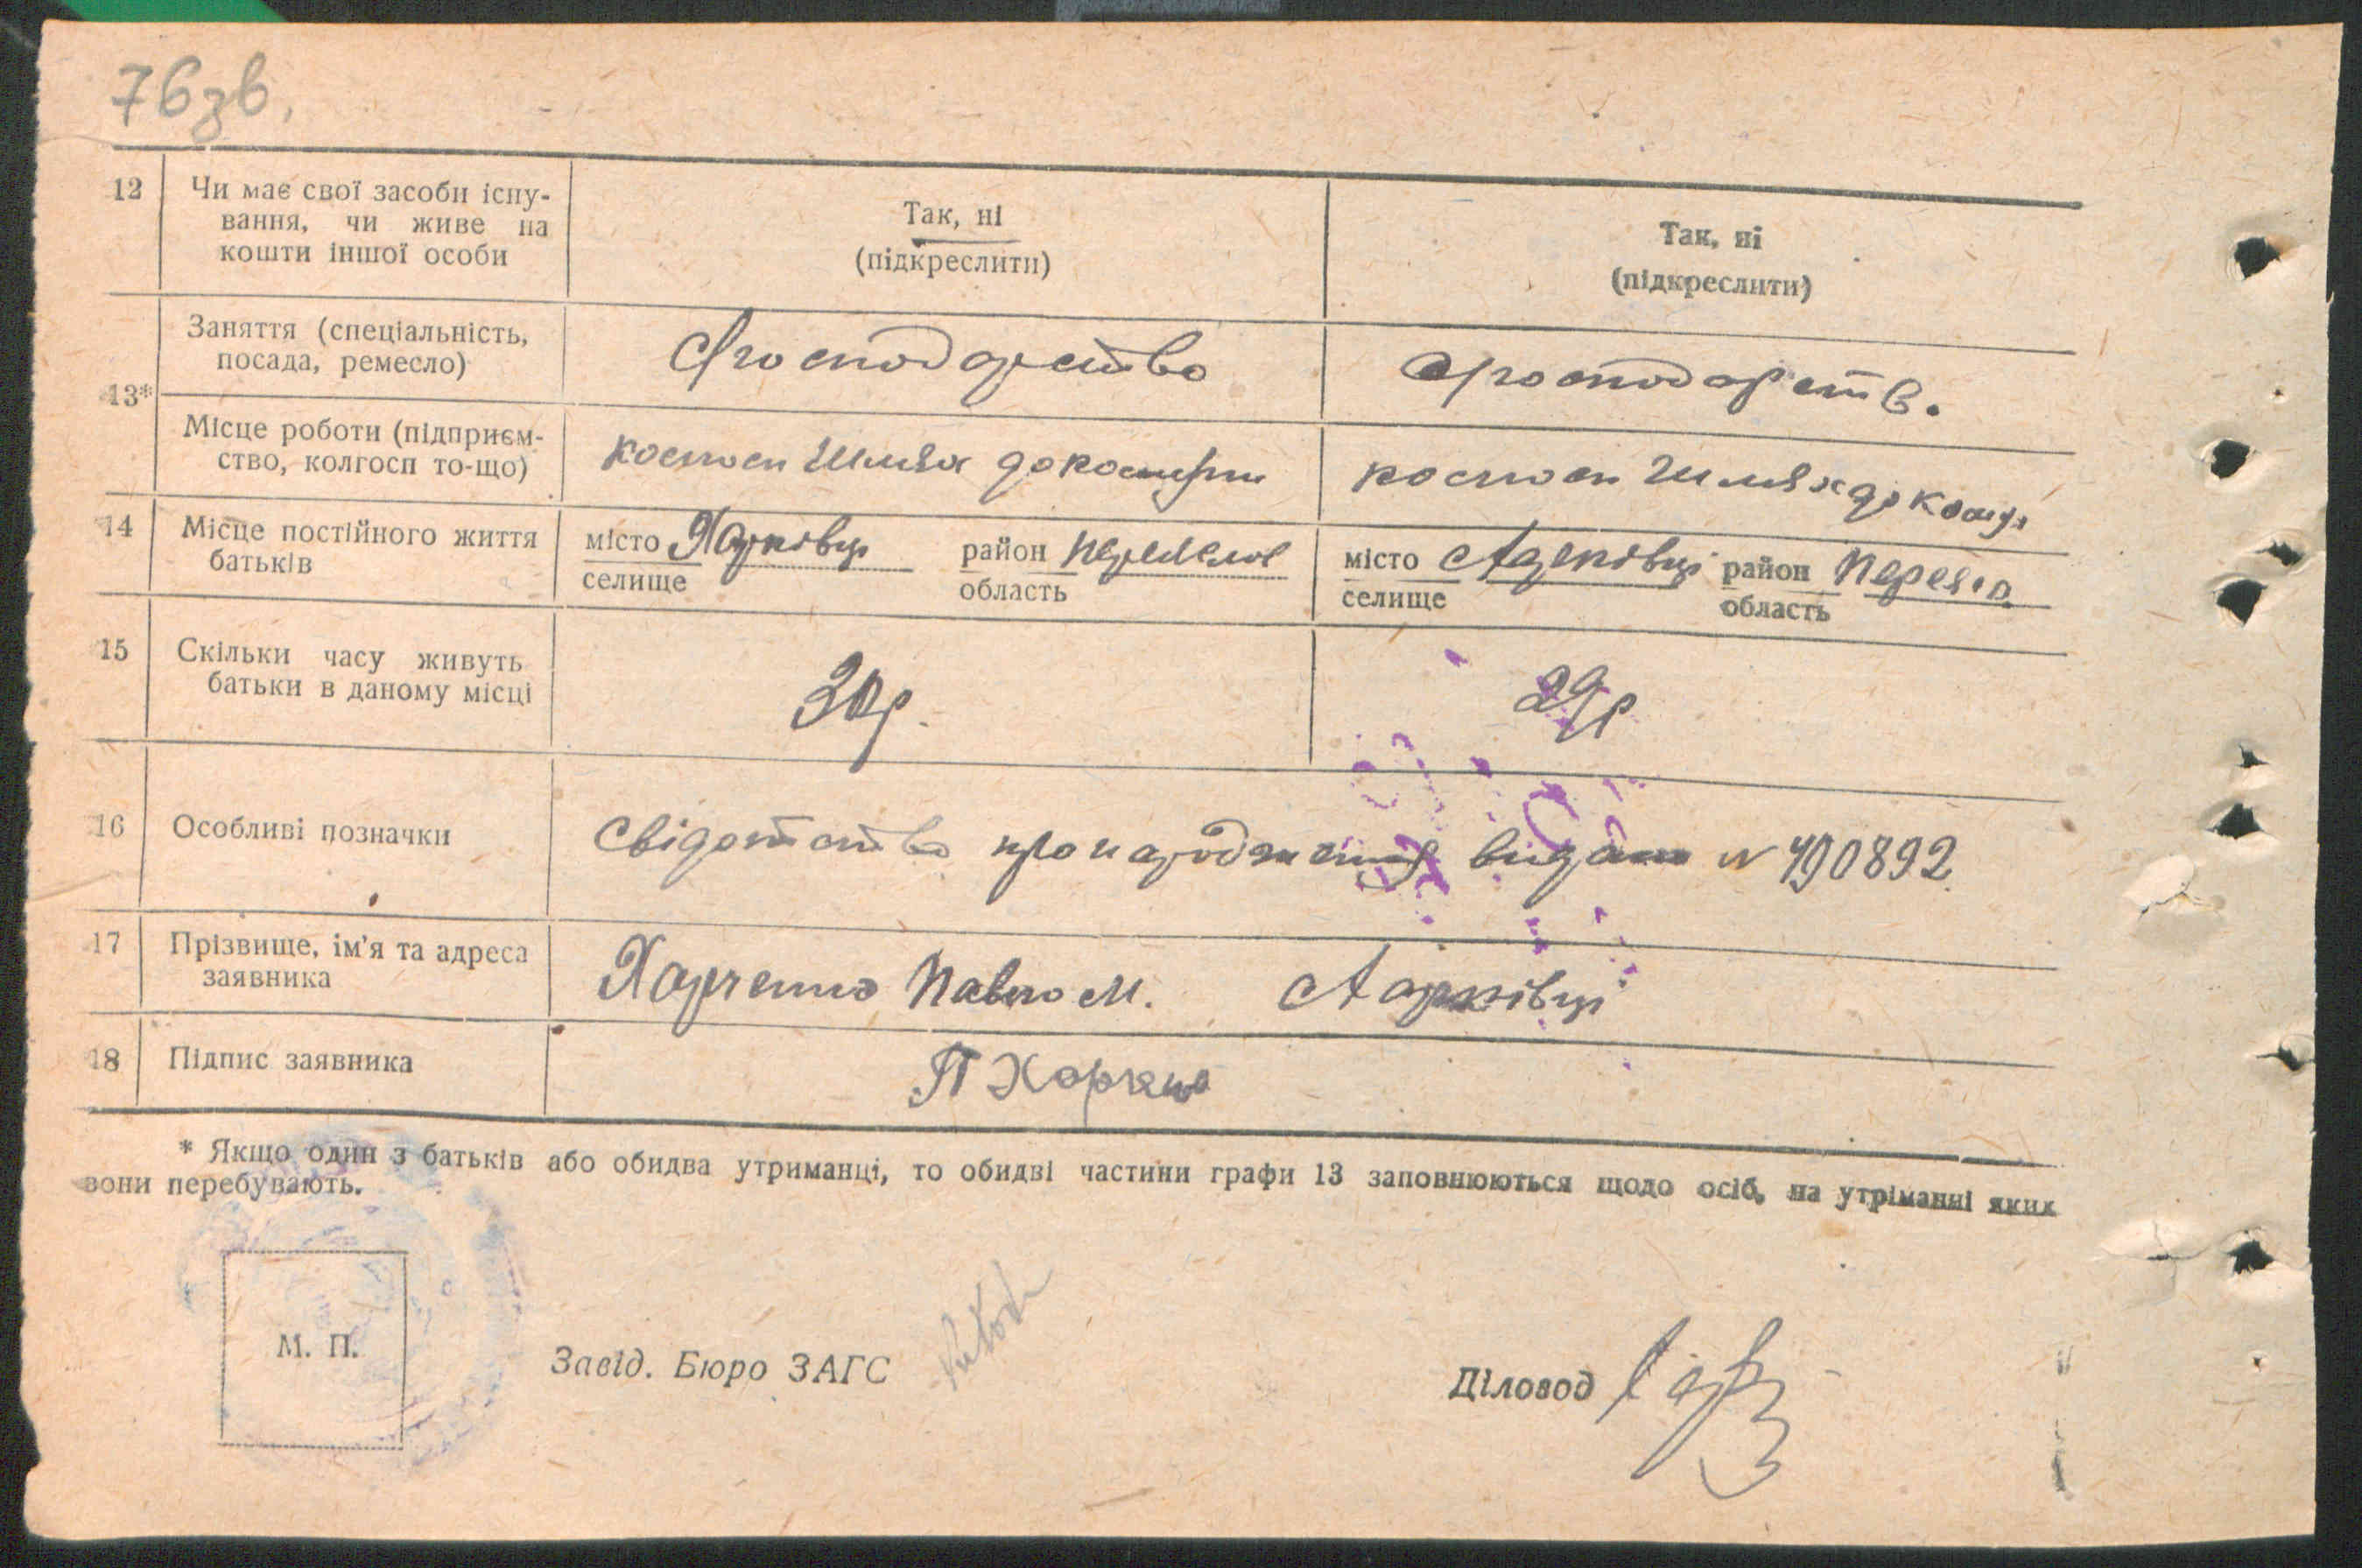 76зв.
12 Чи має свої засоби існу-
вання, чи живе на
кошти іншої особи
Так, ні
(підкреслити)
Так, ні
(підкреслити)
13*
Заняття (спеціальність,
посада, ремесло)
с/господарство
с/господарств.
Місце роботи (підприєм-
ство, колгосп то-що)
колгосп Шлях до
колгосп Шлях до
14 Місце постійного життя
батьків
місто Харківці район
селище область
місто Харківці район Переясл
селище область
15 Скільки часу живуть
батьки в даному місці
30р.
29р
16 Особливі позначки
Свідотство про народження видано № 490892
17 Прізвище, ім’я та адреса
заявника
Харченко Павло М. Харківці
18 Підпис заявника
П Харченко
* Якщо один з батьків або обидва утриманці, то обидві частини графи 13 заповнюються щодо осіб, на утріманні яких
вони перебувають.
М. П.
Завід. Бюро ЗАГС
Діловод